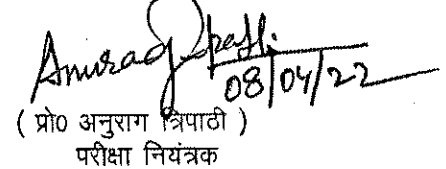 Anurag Tripathi
08/04/22
( प्रो0 अनुराग त्रिपाठी )
परीक्षा नियंत्रक